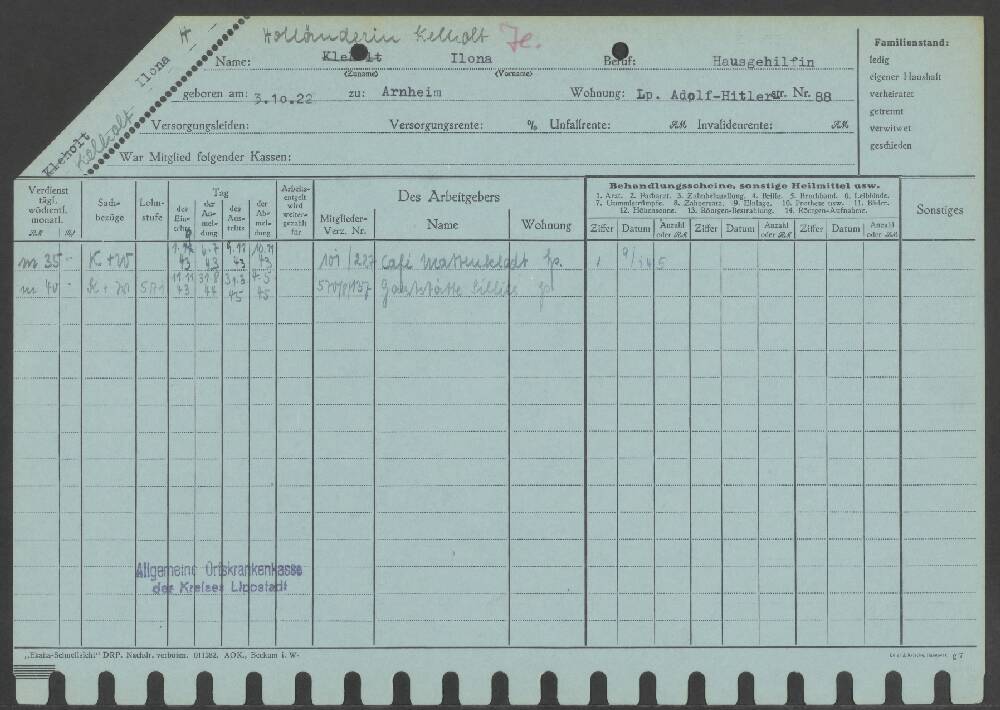 Holländerin Kelholt Je.
Ilona H
Kleholt
Kelholt
Name: Kleholt Ilona Beruf: Hausgehilfin
(Zuname) (Vorname)
geboren am: 3.10.22 zu: Arnheim Wohnung: Lp. Adolf-Hitler str. Nr. 88
Versorgungsleiden: Versorgungsrente: % Unfallrente: RM. Invalidenrente: RM.
War Mitglied folgender Kassen:
Familienstand:
ledig
eigener Haushalt
verheiratet
getrennt
verwitwet
geschieden
Verdienst
tägl.
wöchentl.
monatl.
RM Rpf
Sach-
bezüge
Lohn-
stufe
Tag
des
Ein-
tritts
der
An-
mel-
dung
des
Aus-
tritts
der
Ab-
mel-
dung
Arbeits-
entgelt
wird
weiter-
gezahlt
für
Des Arbeitgebers
Mitglieder-
Verz. Nr.
Name
Wohnung
Behandlungsscheine, sonstige Heilmittel usw.
1. Arzt. 2. Facharzt. 3. Zahnbehandlung. 4. Brille. 5. Bruchband. 6. Leibbinde.
7. Gummistrümpfe. 8. Zahnersatz. 9. Einlage. 10. Prothese usw. 11. Bäder.
12. Höhensonne. 13. Röntgen-Bestrahlung. 14. Röntgen-Aufnahme.
Ziffer Datum Anzahl oder RM Ziffer Datum Anzahl oder RM Ziffer Datum Anzahl oder RM
Sonstiges
m 35 - K + W 43 6.7 43 9.11 43 10.11 43 101/227 Café Mattenklodt Lp. 1
m 40 - K + W 571 11.11 43 31.8 44 31.3 45 4.5 45 Gaststätte
Allgemeine Ortskrankenkasse
des Kreises Lippstadt
„Ekaha-Schnellsicht" DRP. Nachdr. verboten. 011282. AOK., Bochum i. W.
g 7